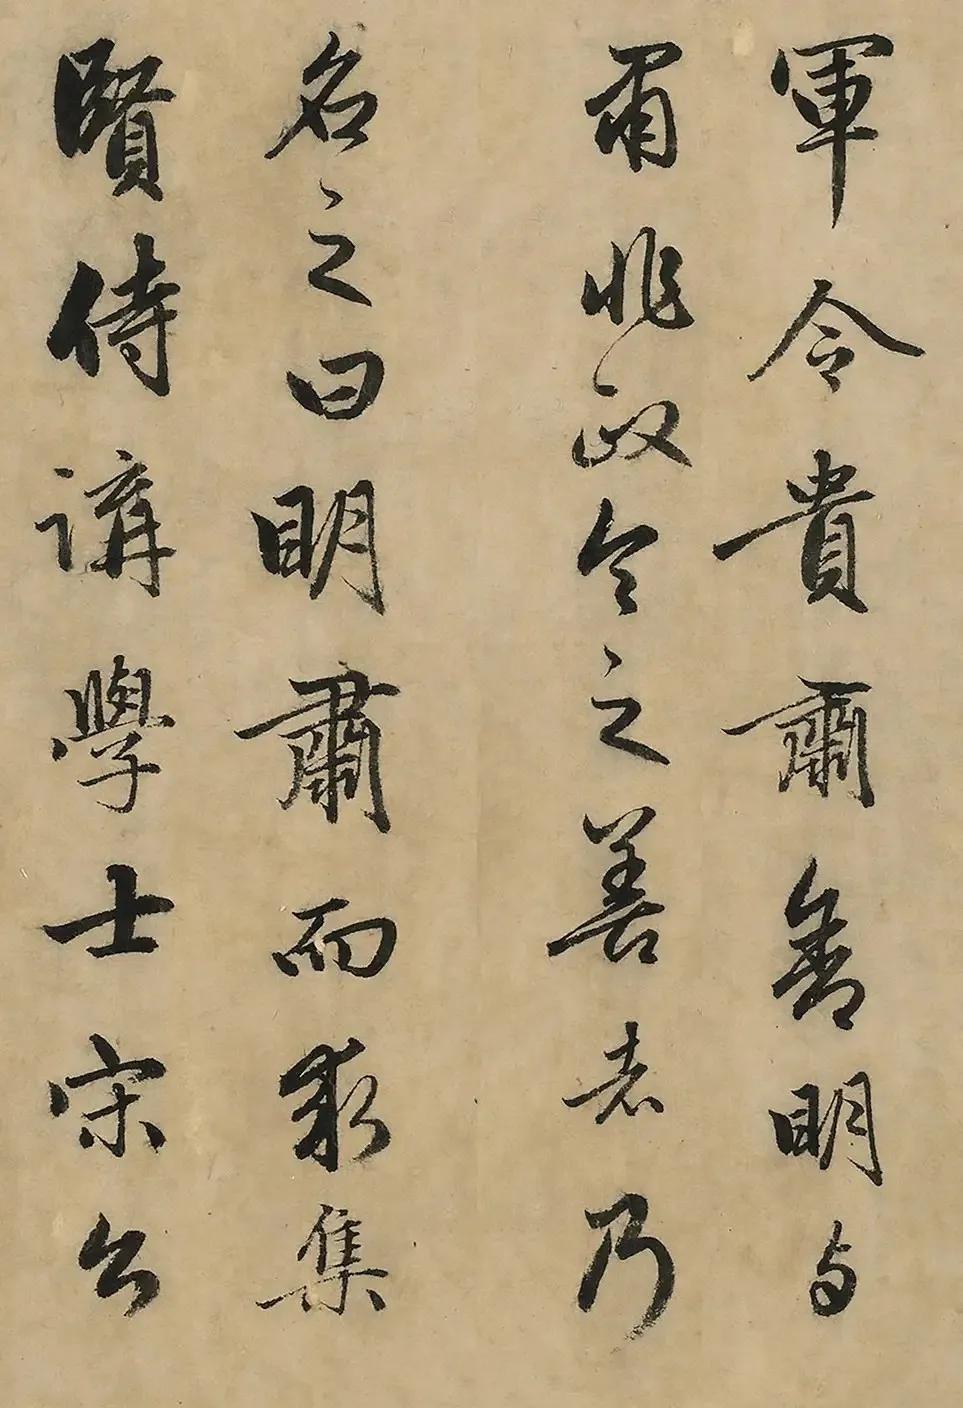 軍令貴肅舍明与
肅非政令之善者乃
名之曰明肅而求集
賢侍講學士宋公